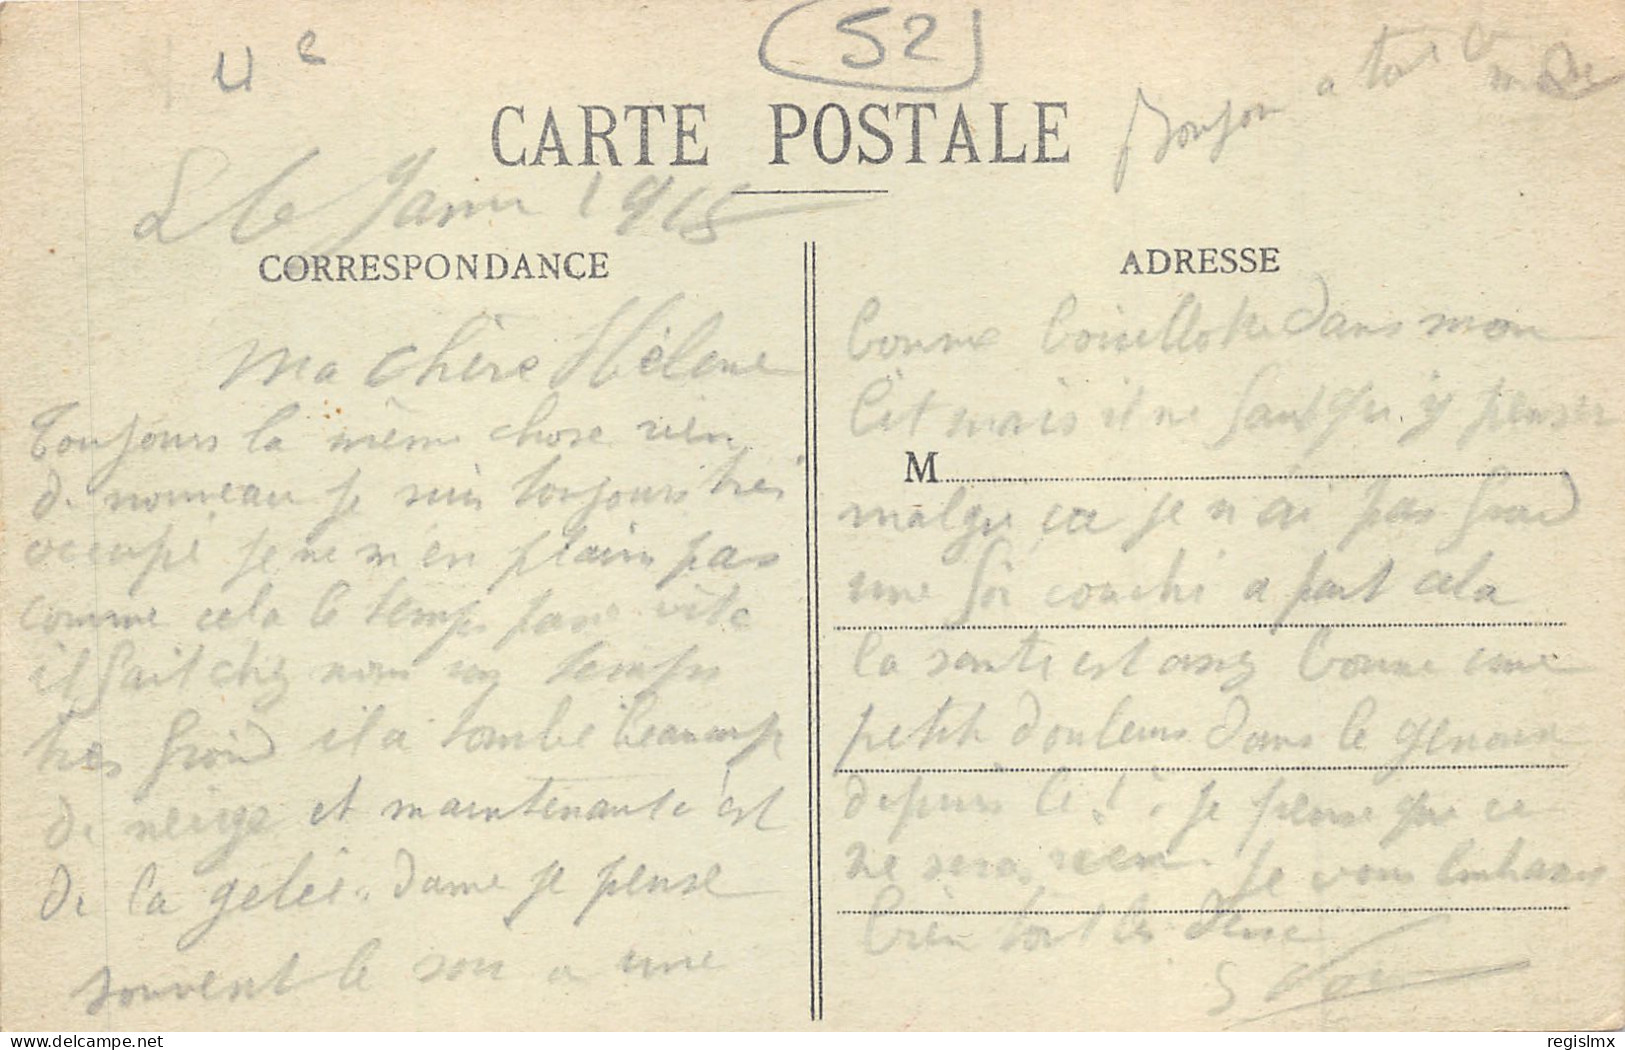 4e
52
CARTE POSTALE
Bonjour a tout
Le 6 Janv 1915
CORRESPONDANCE
Ma chère Hélène
Toujours la même chose rien
de nouveau je suis toujours très
occupé je ne m'en plains pas
comme cela le temps passe vite
il fait chez nous un temps
très froid il a tombé beaucoup
de neige et maintenant c'est
de la gelée.. dame je pense
souvent le soir a une
ADRESSE
bonne bouillotte dans mon
lit mais il ne faut pas y penser
M
malgré ca je n ai pas froid
une foi couché a part cela
la santé est assez bonne une
petite douleurs dans le genoux
depuis le je pense que ce
ne sera rien. Je vous embrasse
bien tout les deux
regislmx
delcampe.net